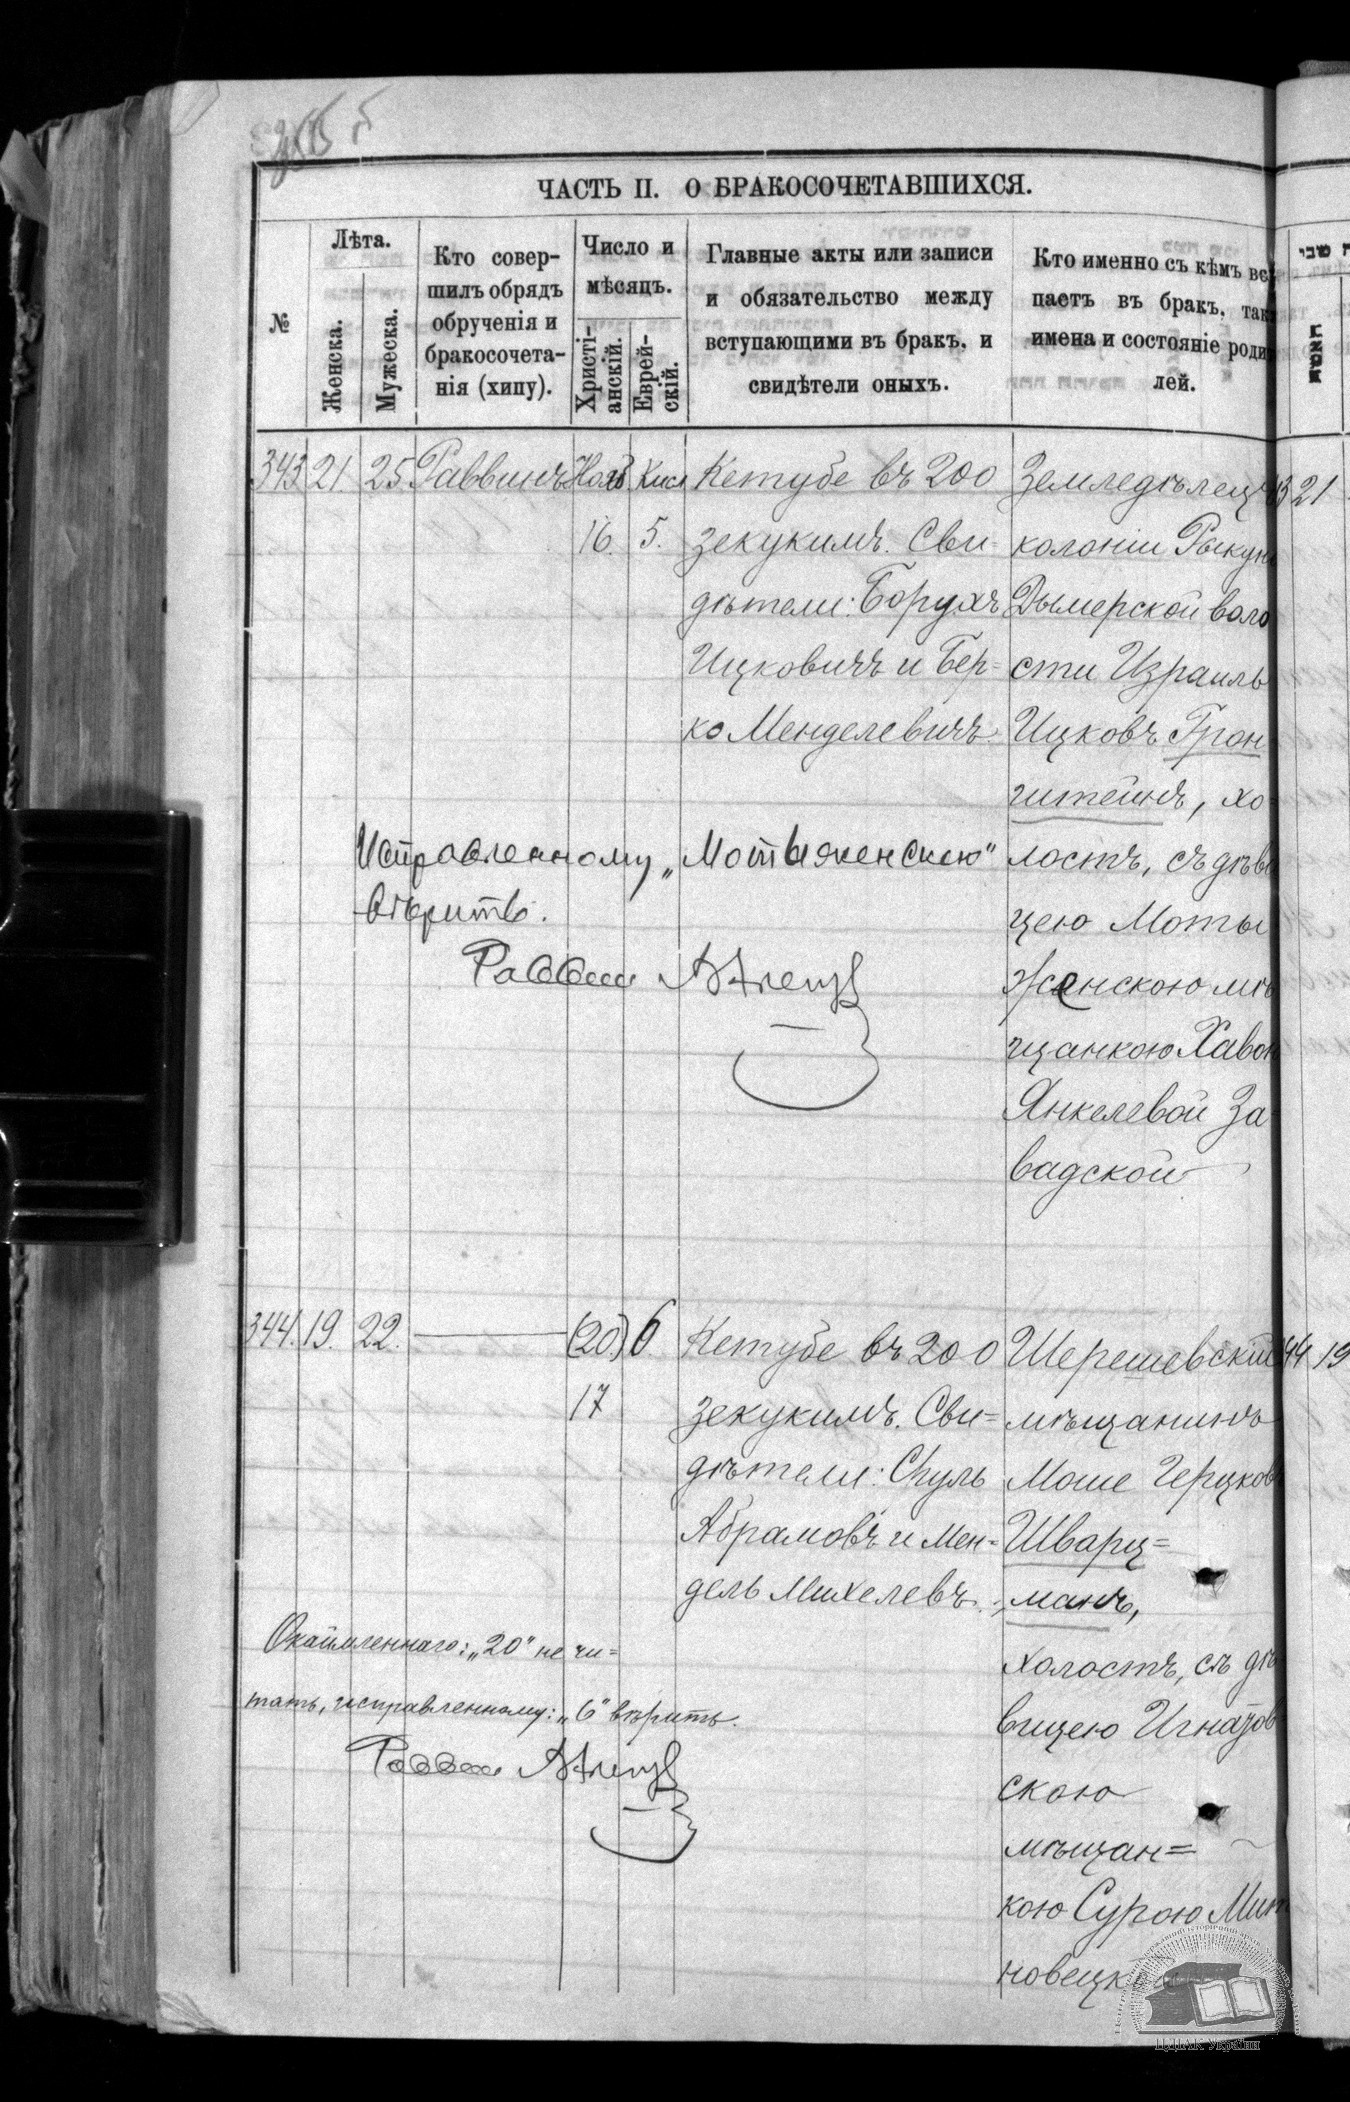 ЧАСТЬ II. О БРАКОСОЧЕТАВШИХСЯ.
№
Лѣта.
Женска.
Мужеска.
Кто совер-
шилъ обрядъ
обрученія и
бракосочета-
нія (хипу).
Число и
мѣсяцъ.
Христі-
анскій.
Еврей-
скій.
Главные акты или записи
и обязательство между
вступающими въ бракъ, и
свидѣтели оныхъ.
Кто именно съ кѣмъ всту
паетъ въ бракъ, такж
имена и состояніе родит
лей.
343 21. 25 Раввинъ Нояб Кисл
16. 5.
Кетубе въ 200
зекукимъ. Сви-
дѣтели: Борухъ
Ицковичъ и Бер=
ко Менделевичъ.
Земледѣлецъ
колоніи Рыкунь
Дымерской воло
сти Израиль
Ицковъ Грон
штейнъ, хо
лостъ, съ дѣви
цею Моты
женскою мѣ
щанкою Хавою
Янкелевой За
вадской
Исправленному „Мотыженскою"
вѣрить.
Раввин
344. 19. 22. — (20) 6
17
Кетубе въ 200
зекукимъ. Сви=
дѣтели: Сруль
Абрамовъ и Мен=
дель Михелевъ.
Шерешевскій
мѣщанинъ
Моше Герцков
Шварц=
манъ,
холостъ, съ дѣ
вицею Игнатов
скою
мѣщан=
кою Сурою Мит
новецкой
Окаймленнаго: „20" не чи=
тать, исправленному: „6" вѣрить.
Раввин
21
44 19
ЦДІАК України